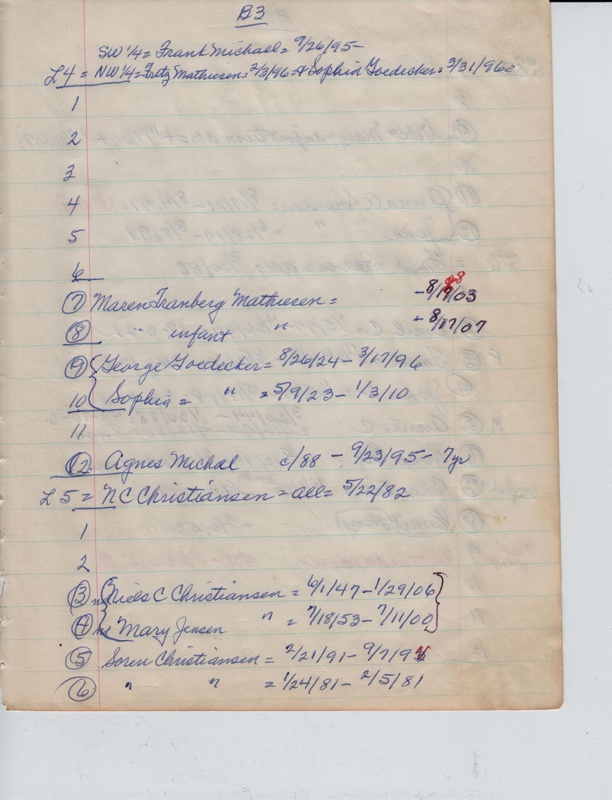 B3
SW 1/4 = Frank Michael = 9/26/95 -
L4 = NW 1/4 = Fritz Mathiesen = 2/3/96 = + Sophia Goedecker = 3/31/96
1
2
3
4
5
6
7 Maren Tranberg Mathiesen = - 8/19/03
8 " infant " - 8/17/07
9 George Goedecker = 8/26/24 - 3/17/96
10 Sophia = " = 5/9/23 - 1/3/10
11
12 Agnes Michal c/88 - 9/23/95 - 7 yr
L5 = NC Christiansen = all = 5/22/82
1
2
3 Niels C Christiansen = 6/1/47 - 1/29/06
4 Mary Jensen " = 7/18/53 - 7/11/00
5 Soren Christiansen = 2/21/91 - 9/7/9
6 " " = 1/24/81 - 2/5/81